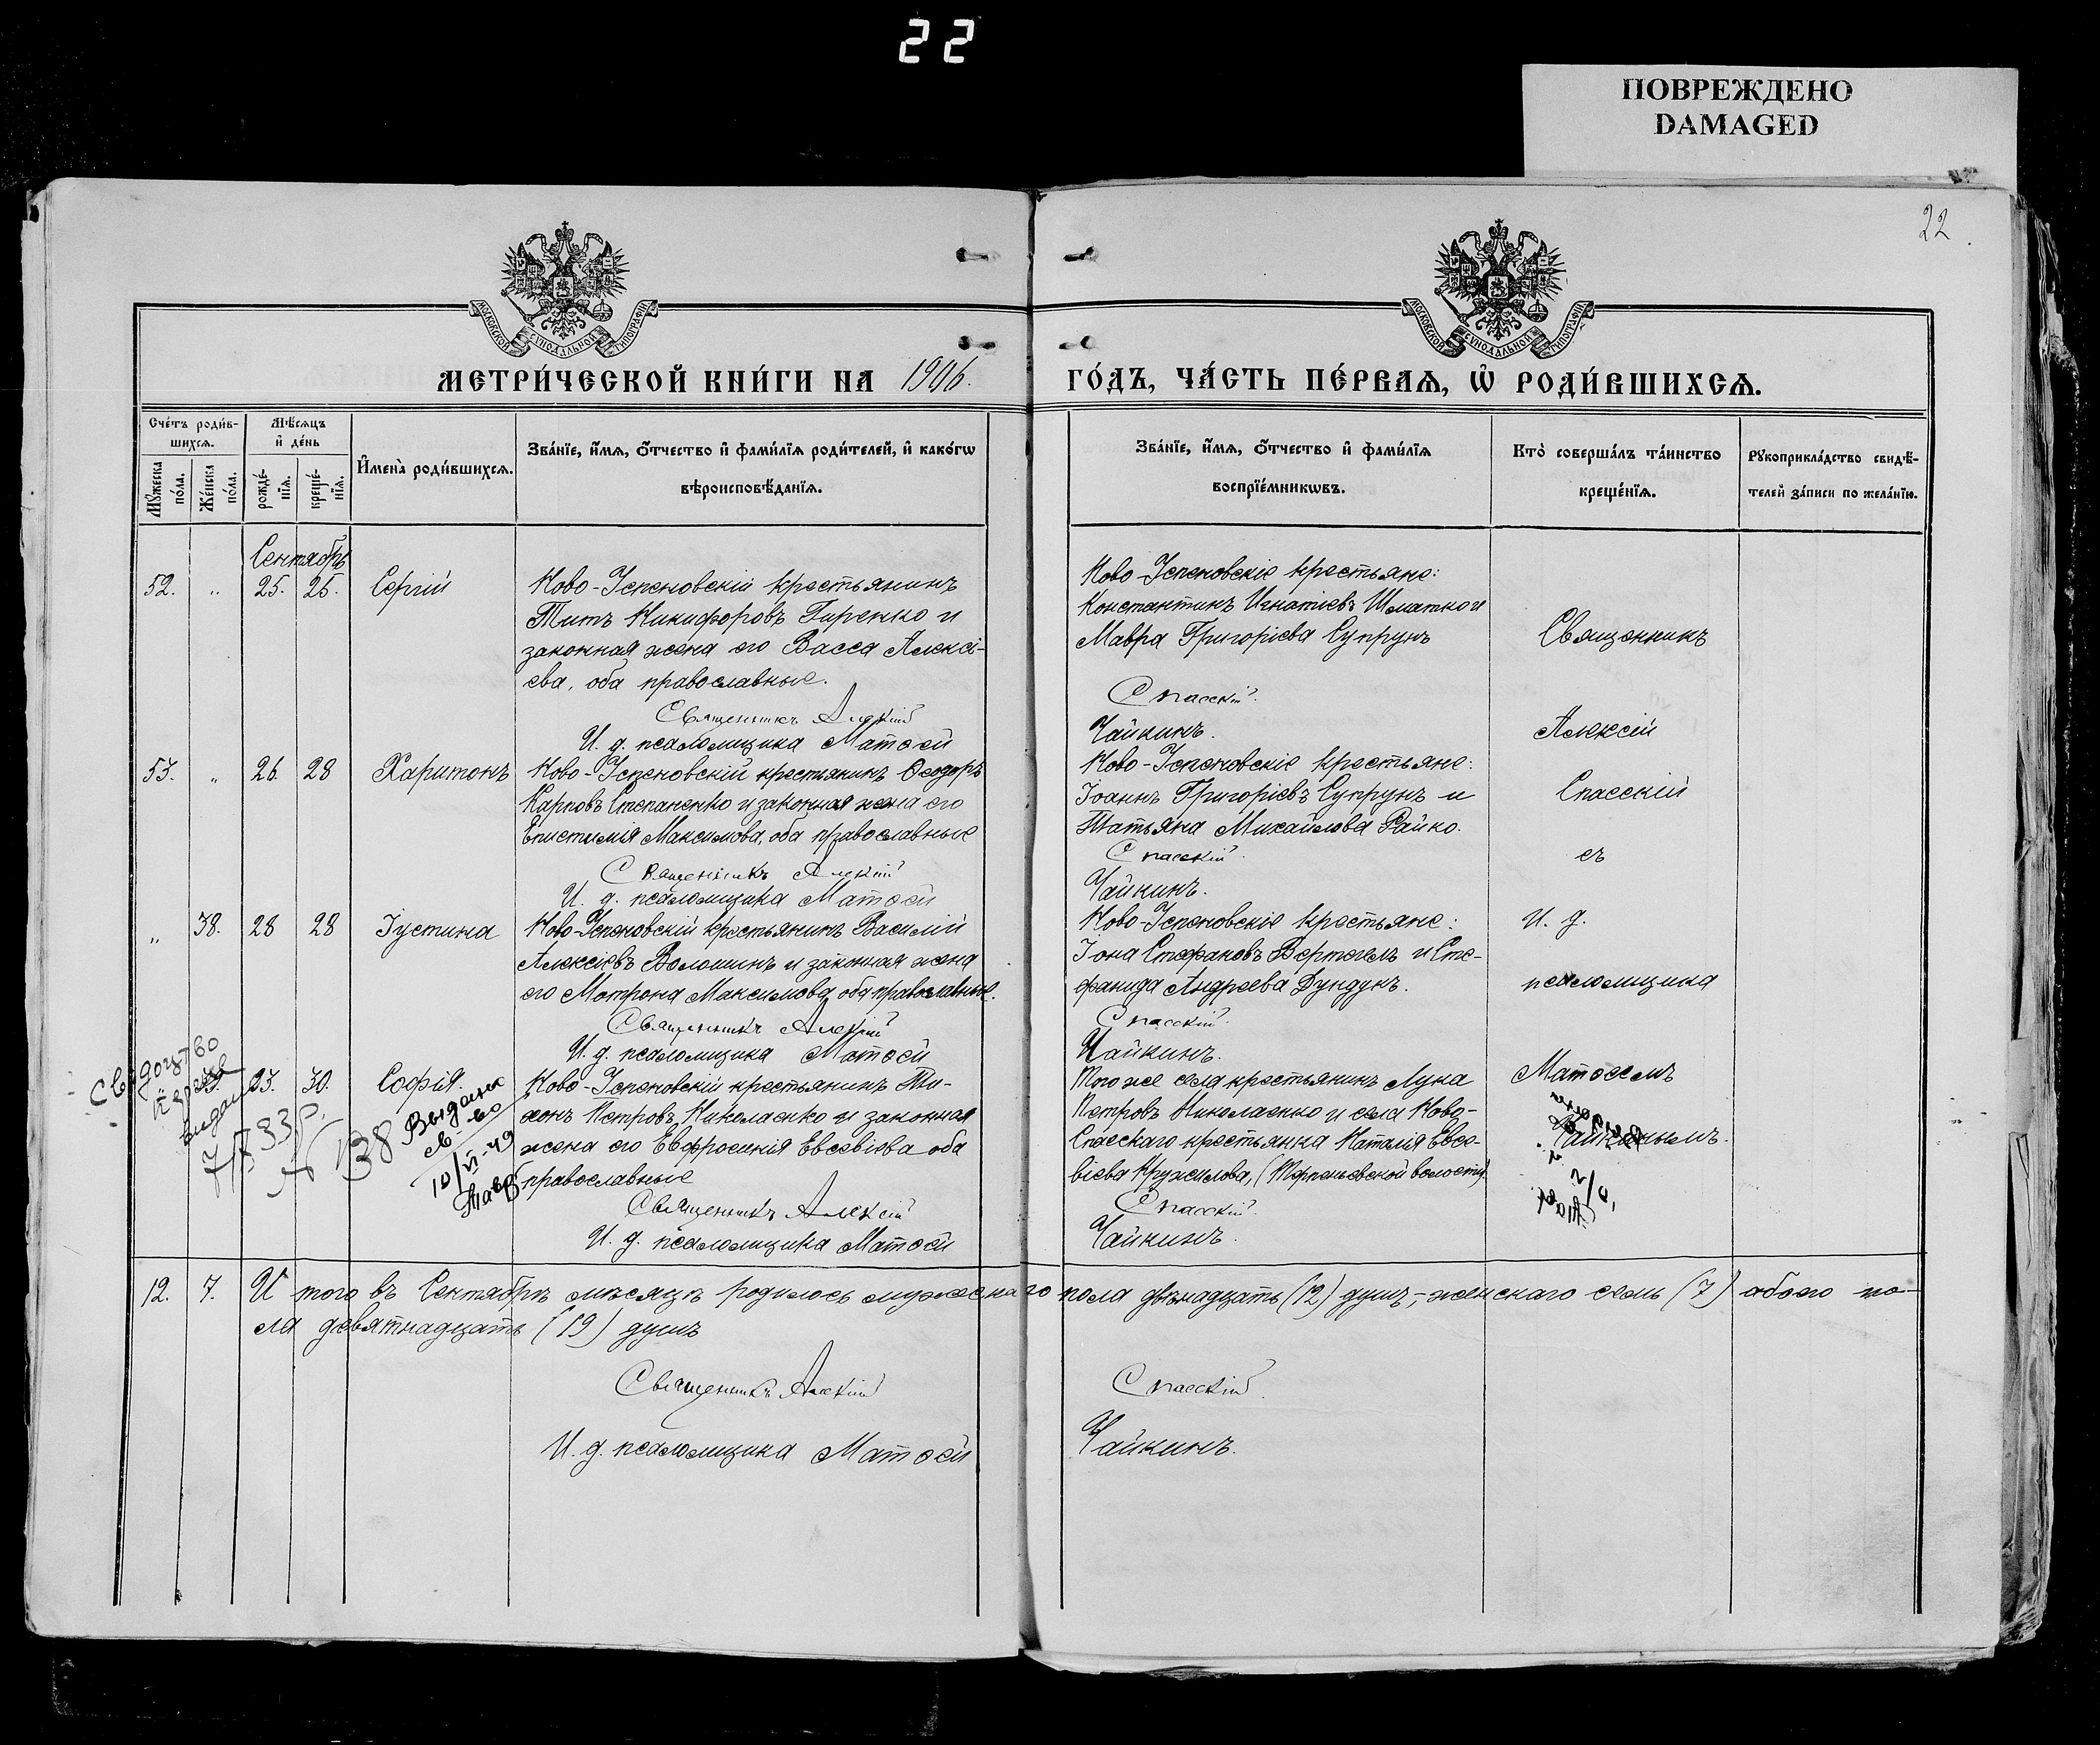 22
ПОВРЕЖДЕНО
DAMAGED
22.
МОСКОВСКОЙ СѴНОДАЛЬНОЙ ТИПОГРАФІИ
МОСКОВСКОЙ СѴНОДАЛЬНОЙ ТИПОГРАФІИ
МЕТРИ́ЧЕСКОЙ КНИ́ГИ НА 1906.
ГО́ДЪ, ЧА́СТЬ ПЕ́РВАѦ, Ѡ҆ РОДИ́ВШИХСѦ.
Сче́тъ роди́в-
шихсѧ.
Мѣ́сѧцъ
и҆ де́нь
Мꙋ́жеска по́ла.
Же́нска по́ла.
рожде́-нїѧ.
креще́-нїѧ.
И҆мена̀ роди́вшихсѧ.
Зва́нїе, и҆́мѧ, ѻ҆́тчество и҆ фами́лїѧ роди́телей, и҆ како́гѡ
вѣроисповѣ́данїѧ.
Зва́нїе, и҆́мѧ, ѻ҆́тчество и҆ фами́лїѧ
воспрїе́мникѡвъ.
Кто̀ соверша́лъ та́инство
креще́нїѧ.
Рꙋкоприкла́дство свидѣ́-
телей за́писи по жела́нїю.
Сентябрь
52. " 25. 25. Сергій
Ново-Успеновскій крестьянинъ
Титъ Никифоровъ Гиренко и
законная жена его Васса Алексі-
ева, оба православные.
Священникъ Алексій
И. д. псаломщика Матѳей
Ново-Успеновскіе крестьяне:
Константинъ Игнатіевъ Шматко и
Мавра Григоріева Супрунъ
Спасскій.
Чайкинъ.
Священникъ
Алексій
53. " 26. 28 Харитонъ
Ново-Успеновскій крестьянинъ Ѳеодоръ
Карповъ Степаненко и законная жена его
Епистимія Максимова, оба православные
Священникъ Алексій
И. д. псаломщика Матѳей
Ново-Успеновскіе крестьяне:
Іоаннъ Григоріевъ Супрунъ и
Татьяна Михайлова Райко.
Спасскій.
Чайкинъ.
Спасскій
съ
" 38. 28 28 Іустина
Ново-Успеновскій крестьянинъ Василій
Алексіевъ Волошинъ и законная жена
его Мотрона Максимова, оба православные.
Священникъ Алексій
И. д. псаломщика Матѳей
Ново-Успеновскіе крестьяне:
Іона Стефановъ Вертегелъ и Сте-
фанида Андреева Дундукъ.
Спасскій.
Чайкинъ.
И. д.
псаломщика
Свидоцтво
видано
138
Выдана
св-во
10/VI-49
23. 30. Софія.
Ново-Успеновскій крестьянинъ Ти-
хонъ Петровъ Николаенко и законная
жена его Евфросинія Евсевіева оба
православные
Священникъ Алексій
И. д. псаломщика Матѳей
Того же села крестьянинъ Лука
Петровъ Николаенко и села Ново-
Спасскаго крестьянка Наталія Евсе-
віева Кружилова, (Терпеньевской волости).
Спасскій.
Чайкинъ.
Матѳеемъ
Чайкинымъ.
12. 7. И того въ Сентябрѣ мѣсяцѣ родилось мужескаго пола двѣнадцать (12) душъ, женскаго семь (7) обоего по-
ла девятнадцать (19) душъ
Священникъ Алексій Спасскій.
И. д. псаломщика Матѳей Чайкинъ.